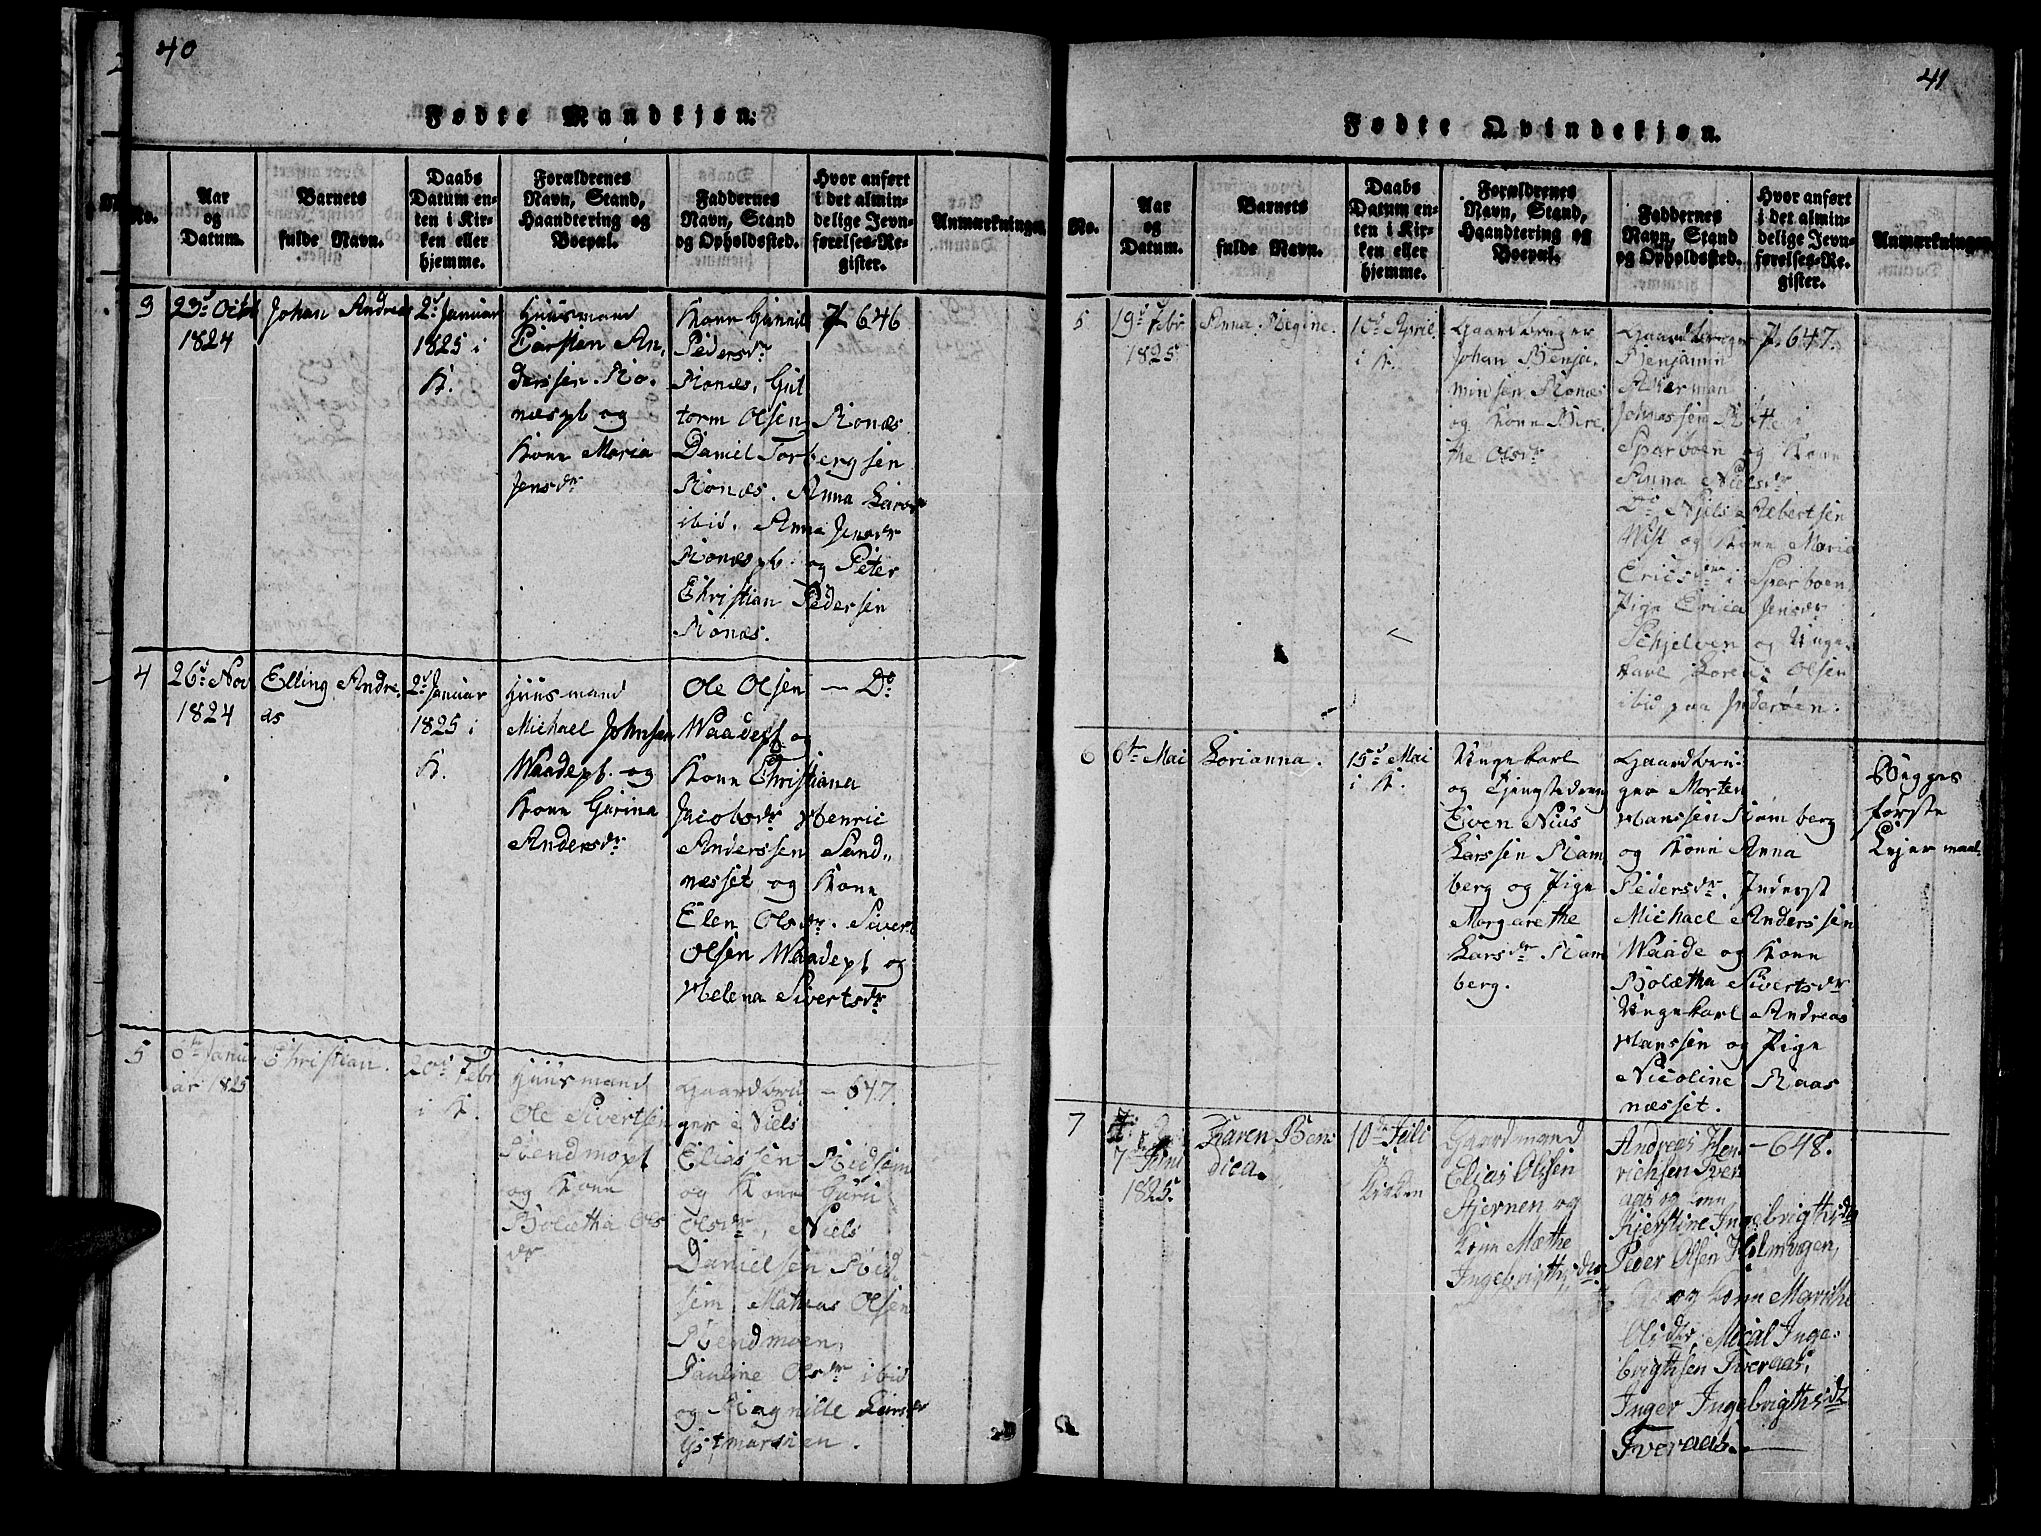 40
Fødte Mandkjøn.
No.
Aar
og
Datum.
Barnets
fulde Navn.
Daabs
Datum en-
ten i Kir-
ken eller
hjemme.
Forældrenes
Navn, Stand,
Haandtering og
Boepæl.
Faddernes
Navn, Stand
og Opholdssted.
Hvor anført
i det almin-
delige Jevn-
førelses-Re-
gister.
Anmærkninger
3
23d Octbr
1824
Johan Andreas
2d Januar
1825 i
K.
Huusmand
Carsten An,
derssen. Ro.
næspl og
Kone Maria
Jensdr
Kone Gunnil
Pedersdr
Ronæs, Gut
torm Olsen Ronæs
Daniel Torbergsen
Ronæs. Anna Larsdr
ibid. Anna Jensdr
Ronæspl. og Peter
Christian Pedersen
Ronæs.
P. 646
4
26d Nov
1824
Elling Andre,
as
2d Januar
1825 i
K.
Huusmand
Michael Johnsen
Waadepl. og
Kone Gurina
Andersdr
Ole Olsen
Waadepl og
Kone Christiana
Jacobsdr Henric
Anderssen Sand,,
næsset og Kone
Elen Olsdr. Sivert
Olsen Waadepl og
Helena Sivertsdr
— Do
5
6te Janu
ar 1825
Christian.
20d Febr
i K.
Huusmand
Ole Sivertsen
Svendmopl
og Kone
Bolætha Ols
dr
Gaardbru
ger Niels
Eliassen Ridsem
og Kone Guru
Olsdr, Niels
Danielsen Rid,
sem. Mathias Olsen
Svendmoen,
Pauline Olsdr ibid
og Magnille Larsdr
— 647.
41
Fødte Qvindekjøn.
No.
Aar
og
Datum.
Barnets
fulde Navn.
Daabs
Datum en-
ten i Kir-
ken eller
hjemme.
Forældrenes
Navn, Stand,
Haandtering og
Boepæl.
Faddernes
Navn, Stand
og Opholdssted.
Hvor anført
i det almin-
delige Jevn-
førelses-Re-
gister.
Anmærkninger.
5
19d Febr
1825
Anna Regine.
10d April
i K.
Gaardbruger
Johan Benja,
minsen Ronæs
og Kone Bire,
the Olsdr
Gaardbruger
Benjamin
Akerman
Johnassen i
Sparboen og Kone
Anna Nielsdr
Do Niels Albertsen
Wist og Kone Maria
Ericsdr i Sparboen
Pige Erica Jensdr
Schjelven og Unge,
karl Loren: Olsen
ibid paa Inderøen.
P. 647.
6
6te Mai
Lorianna.
15d Mai
i K.
Ungekarl
og Tjenestedreng
Even Nius
Larssen Ram
berg og Pige
Margarethe
Larsdr. Ram
berg.
Gaardbru-
ger Morten
Hanssen Ramberg
og Kone Anna
Pedersdr. Inderst
Michael Anderssen
Waade og Kone
Bolætha Sivertsdr
Ungekarl Andreas
Hanssen og Pige
Nicoline Raas
næsset.
Begges
første
Lejermaal.
7
7de Juni
1825.
Karen Ben
dica.
10de Juli
i
Kirken
Gaardmand
Elias Olssen
Stjernen og
Kone Mæthe
Ingebrigthsdr
Andreas Hen
richsen Tver
aas og kone
Kjerstine Ingebrigthsdr
Peder Olsen Holmvigen,
og kone Marithe
Olsdtr, Mical Inge-
brigthsen Tveraas,
Inger Ingebrigthsdtr
Tveraas.
— 648.